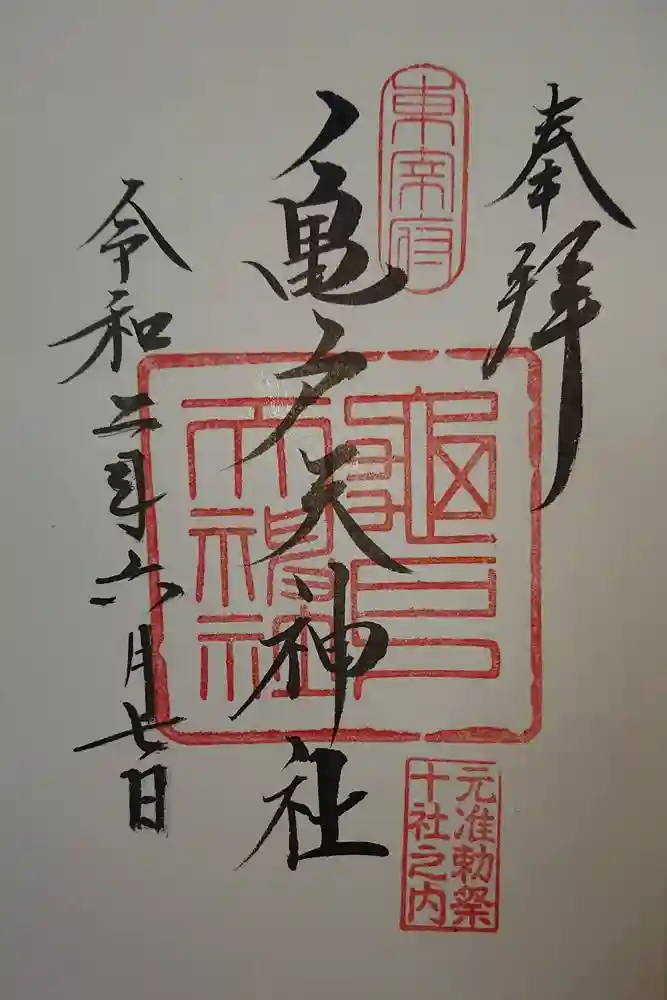 奉拝
東宰府
亀戸天神社
龜戸天神社
元准勅祭
十社之内
令和二年六月七日